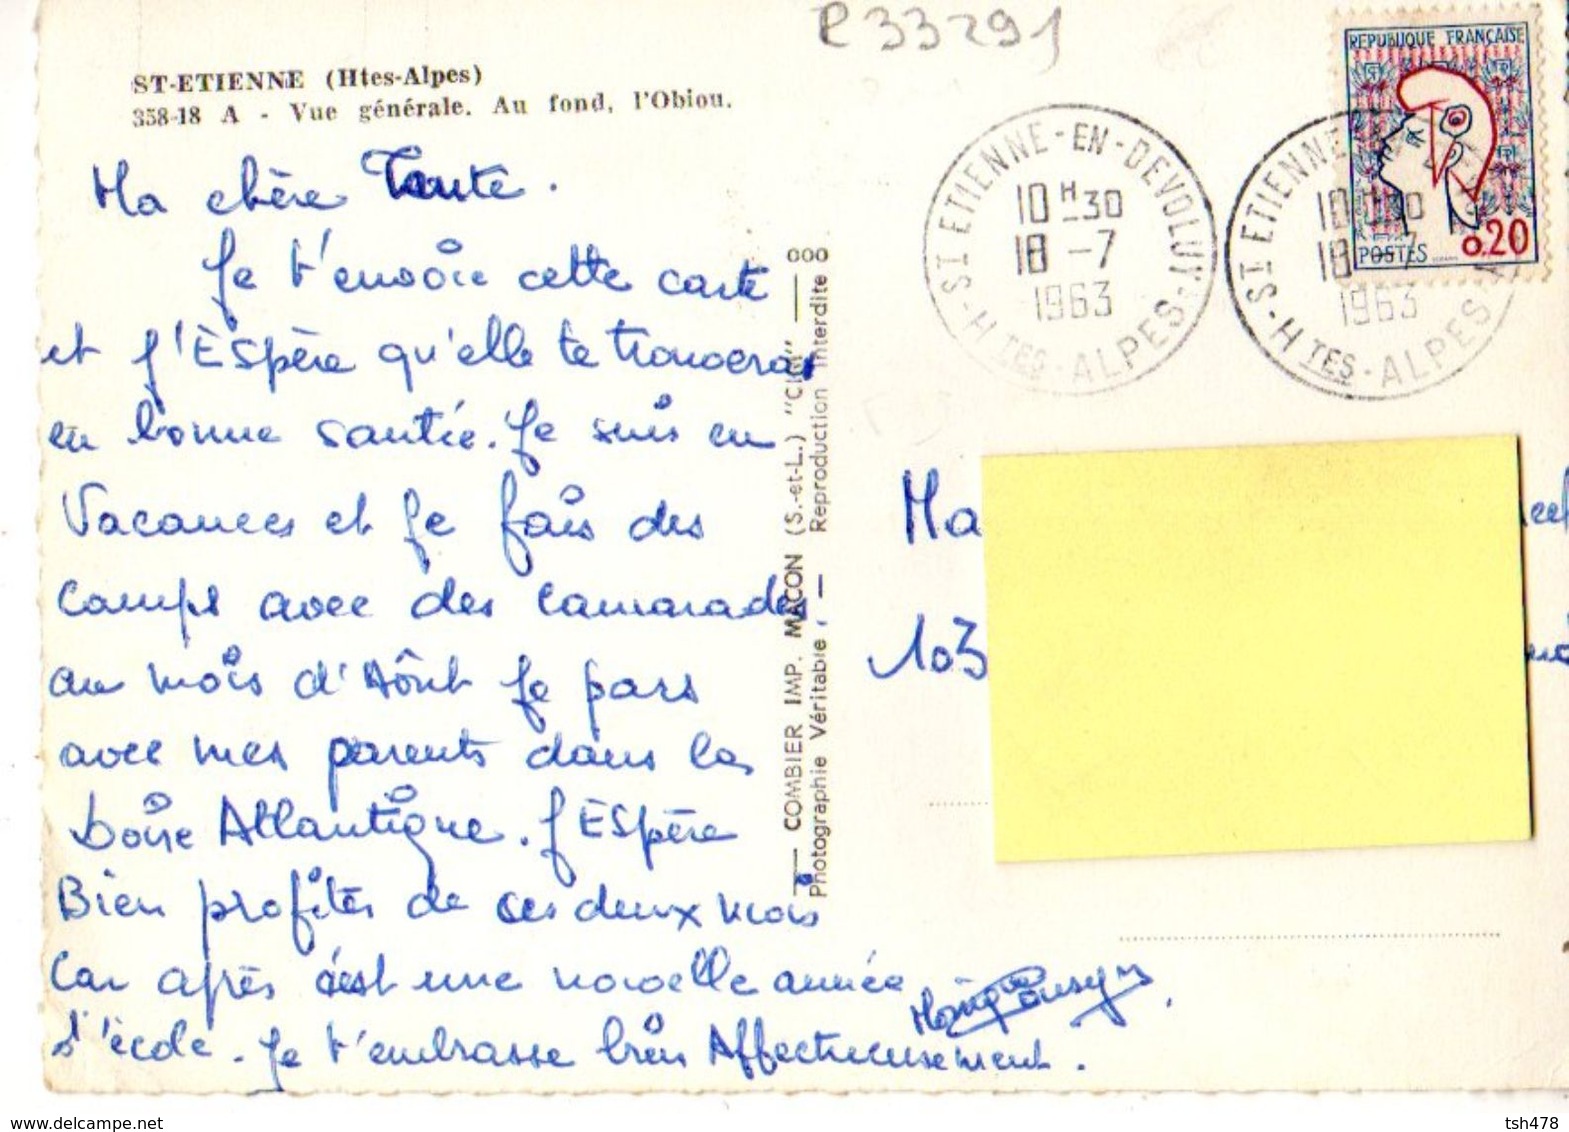 e 33291
REPUBLIQUE FRANÇAISE
0.20
POSTES
ST-ETIENNE (Htes-Alpes)
358-18 A - Vue générale. Au fond, l'Obiou.
ST ETIENNE-EN-DEVOLUY
10 H-30
18 -7
1963
-HTES-ALPES-
ST ETIENNE
18 -7
1963
-HTES-ALPES
Ma chère Tante.
Je t'envoie cette carte
et j'Espère qu'elle te trouveras
en bonne santée. Je suis en
Vacances et je fais des
camps avec des camarades
au mois d'Aôut je pars
avec mes parents dans la
Loire Atlantique. j'ESpère
Bien profités de ces deux mois
Car après c'est une nouvelle année
d'école. Je t'embrasse bien Affectueusement.
COMBIER IMP. MACON (S.-et-L.) "CIM"
Photographie Véritable - Reproduction Interdite
Ma
103
delcampe.net
tsh478